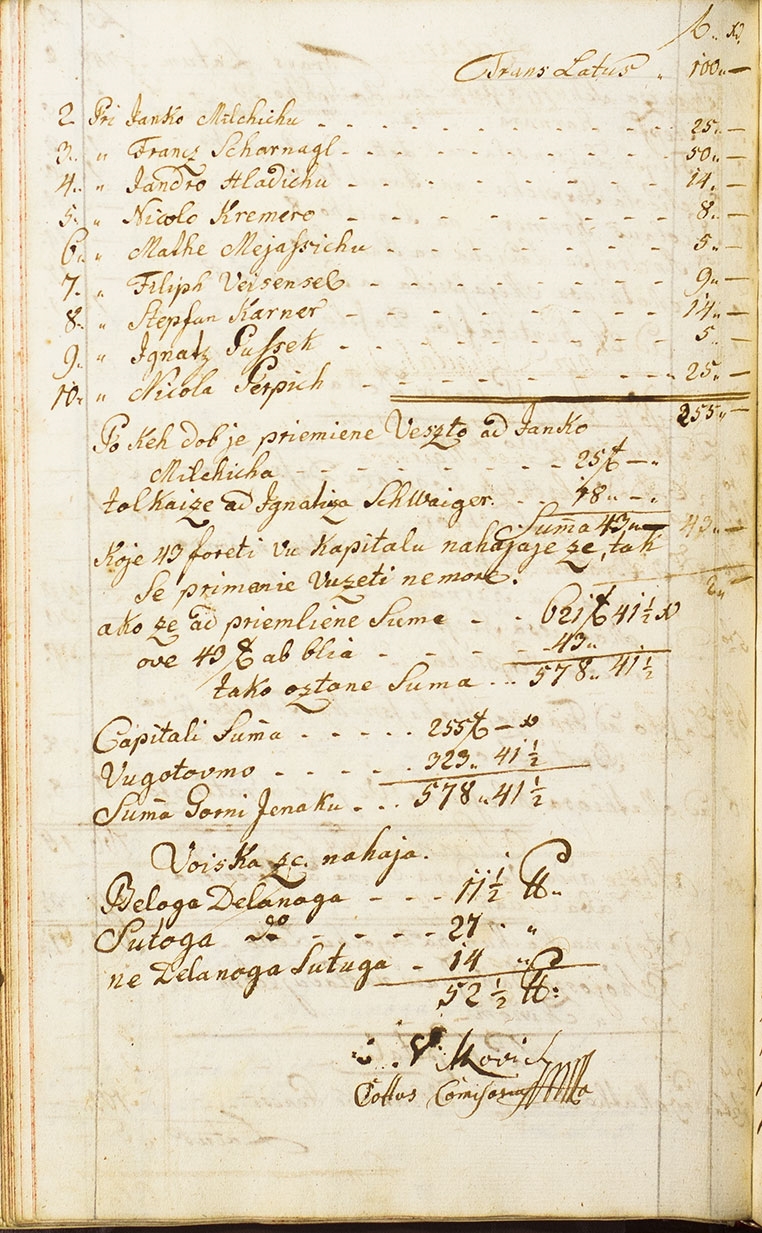 f. xr.
Trans Latus „ 100„ —
2 Pri Janko Milchichu - - - - 25„ —
3„ „ Francz Scharnagl - - - - 50„ —
4„ „ Jandro Hladichu - - - - 14„ —
5„ „ Nicolo Kremero - - - - 8„ —
6„ „ Mathe Mejassichu - - - - 5„ —
7„ „ Filiph Veisensel - - - - 9„ —
8„ „ Stepfan Karner - - - - 14„ —
9„ „ Ignatz Gussek - - - - 5„ —
10„ „ Nicola Perpich - - - - 25„ —
255„ —
Po Keh dob je priemiene Veszto ad Janko
Milchicha - - - - 25 f — „
tolkaize ad Ignatiza Schwaiger - - 18„ — „
Sum̄a 43„ — 43„ —
Koje 43 foreti vu Kapitalu nahajaje ze, tak
Se primanie Vuzeti nemore. 2„ —
ako ze ad priemliene Sume - - 621 f 41 ½ xr
ove 43 f ab blia - - - - 43„
tako oztane Suma - - 578„ 41 ½
Capitali Sum̄a - - - - 255 f — xr
Vugotovmo - - - - 323„ 41 ½
Sum̄a Gorni Jenaku - - - 578„ 41 ½
Voiska ze nahaja.
Beloga Delanoga - - - 11 ½ ℔„
Sutoga do - - - - 27 „ „
ne Delanoga Sutuga - 14 „
52 ½ ℔:
Com̄isario